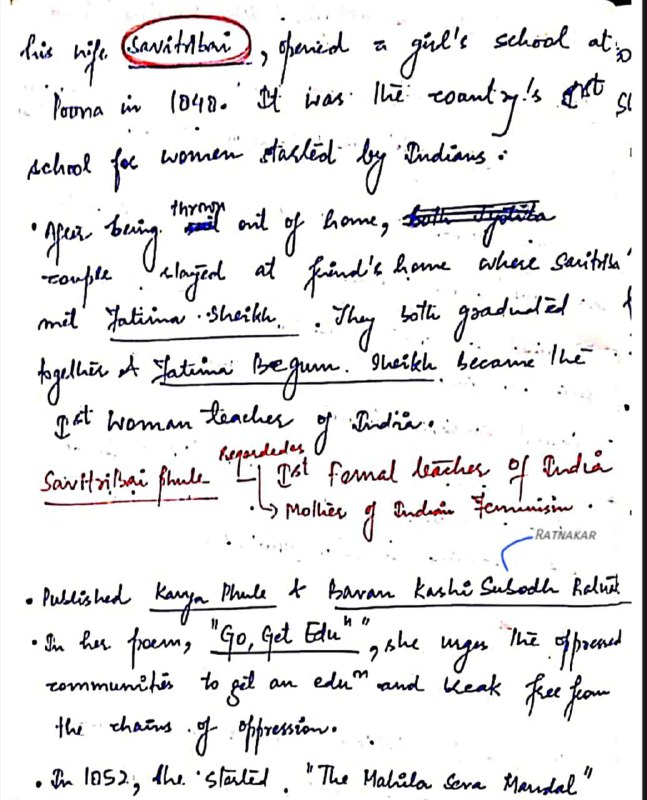 his wife Savitribai, opened a girl's school at
Poona in 1848. It was the country's 1st
school for women started by Indians.
• After being thrown out of home,
couple stayed at friend's home where Savitriba
met Fatima Sheikh. They both graduated
together & Fatima Begum Sheikh became the
1st Woman teacher of India.
Regarded as
Savitribai Phule 1st Female teacher of India
→ Mother of Indian Feminism.
RATNAKAR
• Published Kavya Phule & Bavan Kashi Subodh Ratnak
• In her poem, "Go, Get Eduⁿ", she urges the oppressed
communities to get an eduⁿ and break free from
the chains of oppression.
• In 1852, she started "The Mahila Seva Mandal"